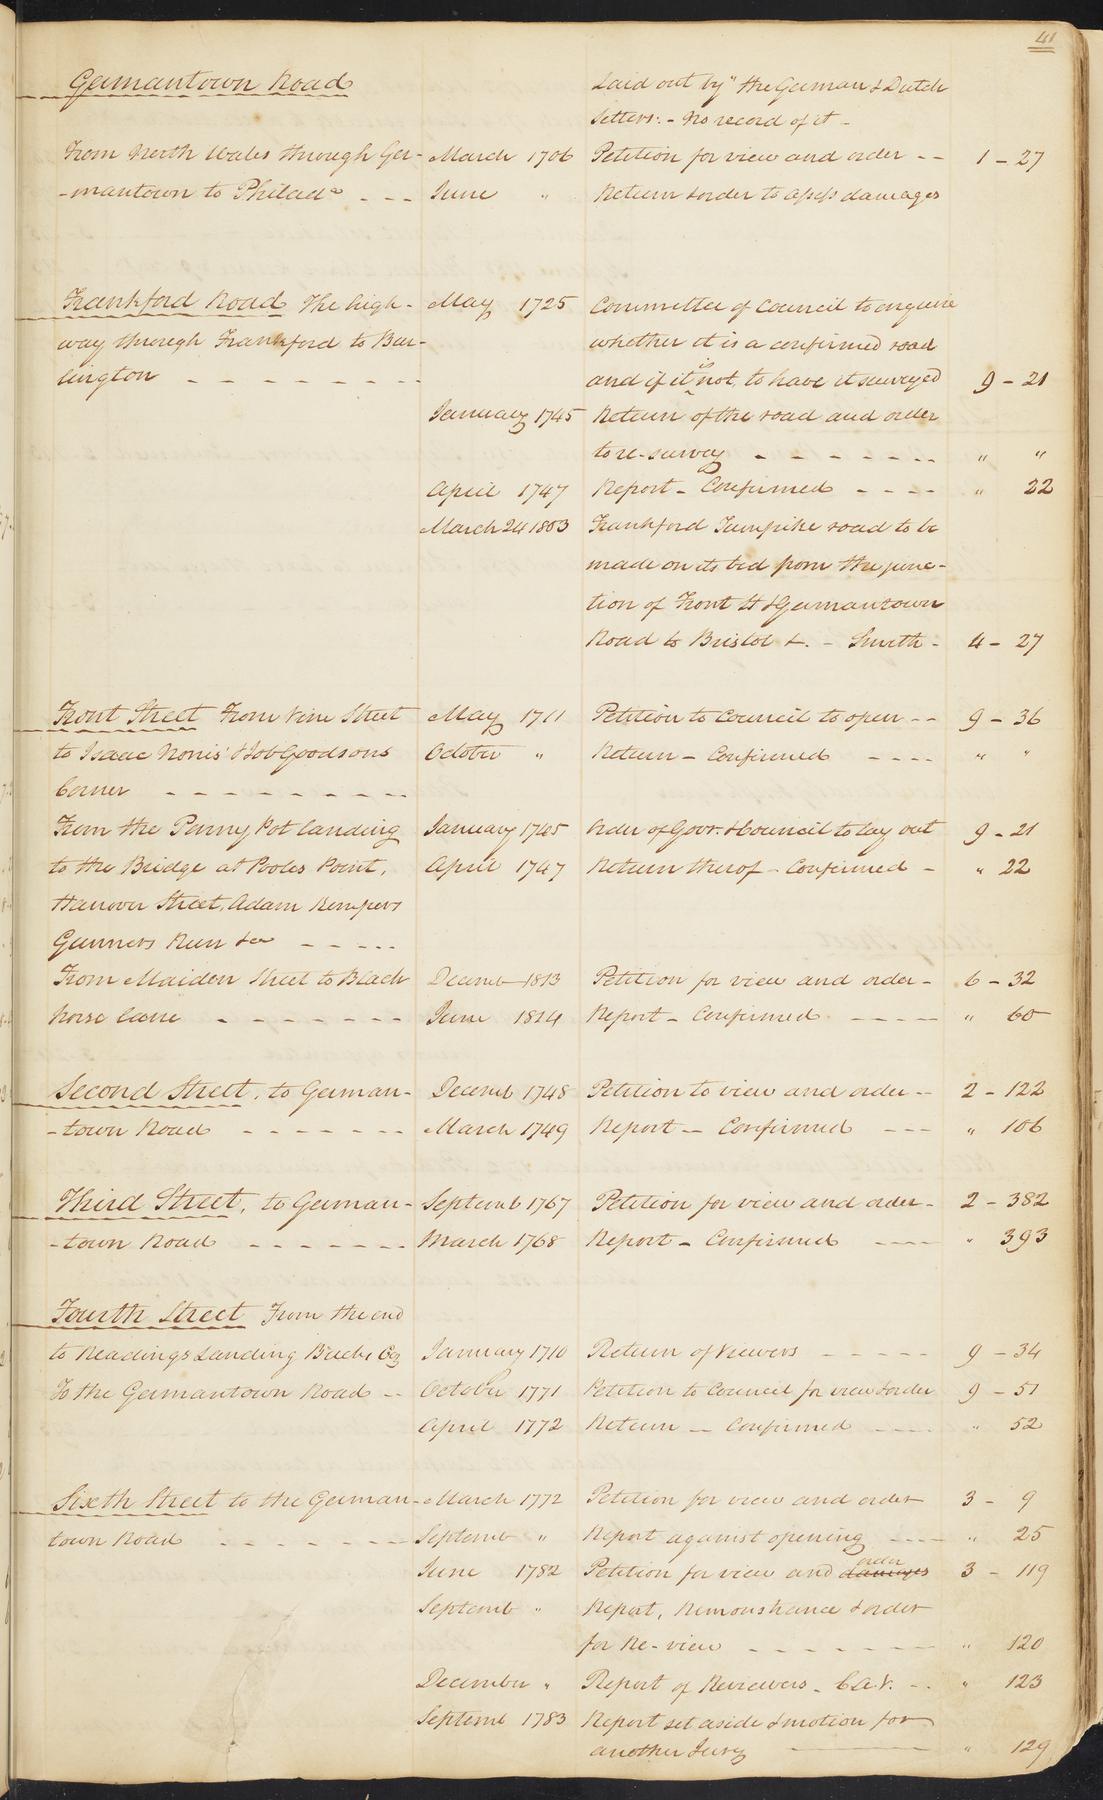 41
Germantown Road Laid out by "the German & Dutch
Setters". - No record of it -
From North Wales through Ger- March 1706 Petition for view and order - - 1 - 27
-mantown to Philada - - - June " Return & order to assess damages
Frankford Road The high- May 1725 Committee of Council to enquire
way through Frankford to Bur- whether it is a confirmed road
lington - - - - - - - and if it is not, to have it surveyed 9 - 21
January 1745 Return of the road and order
to re-survey - - - - - - - " "
April 1747 Report - Confirmed - - - - " 22
March 24 1803 Frankford Turnpike road to be
made on its bed from the junc-
tion of Front St & Germantown
Road to Bristol &. - Smith - 4 - 27
Front Street From Vine Street May 1711 Petition to Council to open - - 9 - 36
to Isaac Norris' & Job Goodsons October " Return - Confirmed - - - - " "
Corner - - - - - - - - -
From the Penny Pot landing January 1745 Order of Govr. & Council to lay out 9 - 21
to the Bridge at Pooles Point, April 1747 Return therof - Confirmed - " 22
Hanover Street, Adam Kempers
Gunners Run &ca - - - - -
From Maiden Street to Black Decemb 1813 Petition for view and order - 6 - 32
horse lane - - - - - - - June 1814 Report - Confirmed - - - - - " 60
Second Street, to German- Decemb 1748 Petition to view and order - - 2 - 122
-town Road - - - - - - - March 1749 Report - Confirmed - - - " 106
Third Street, to German- Septemb 1767 Petition for view and order - 2 - 382
-town Road - - - - - - - March 1768 Report - Confirmed - - - - " 393
Fourth Street From the end
to Readings Landing Bucks Co January 1710 Return of Viewers - - - - - 9 - 34
To the Germantown Road - - October 1771 Petition to Council for view & order 9 - 51
April 1772 Return - Confirmed - - - - " 52
Sixth Street to the German- March 1772 Petition for view and order 3 - 9
town Road - - - - - - - Septemb " Report against opening - - - - " 25
June 1782 Petition for view and damages order 3 - 119
Septemb " Report, Remonstrance & order
for Re-view - - - - - - - " 120
December " Report of Reviewers - C.A.V. - - " 123
Septemb 1783 Report set aside & motion for
another Jury - " 129